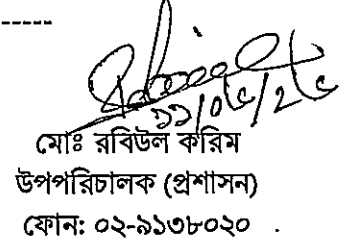 -----
মোঃ রবিউল করিম
উপপরিচালক (প্রশাসন)
ফোন: ০২-৯১৩৮০২০